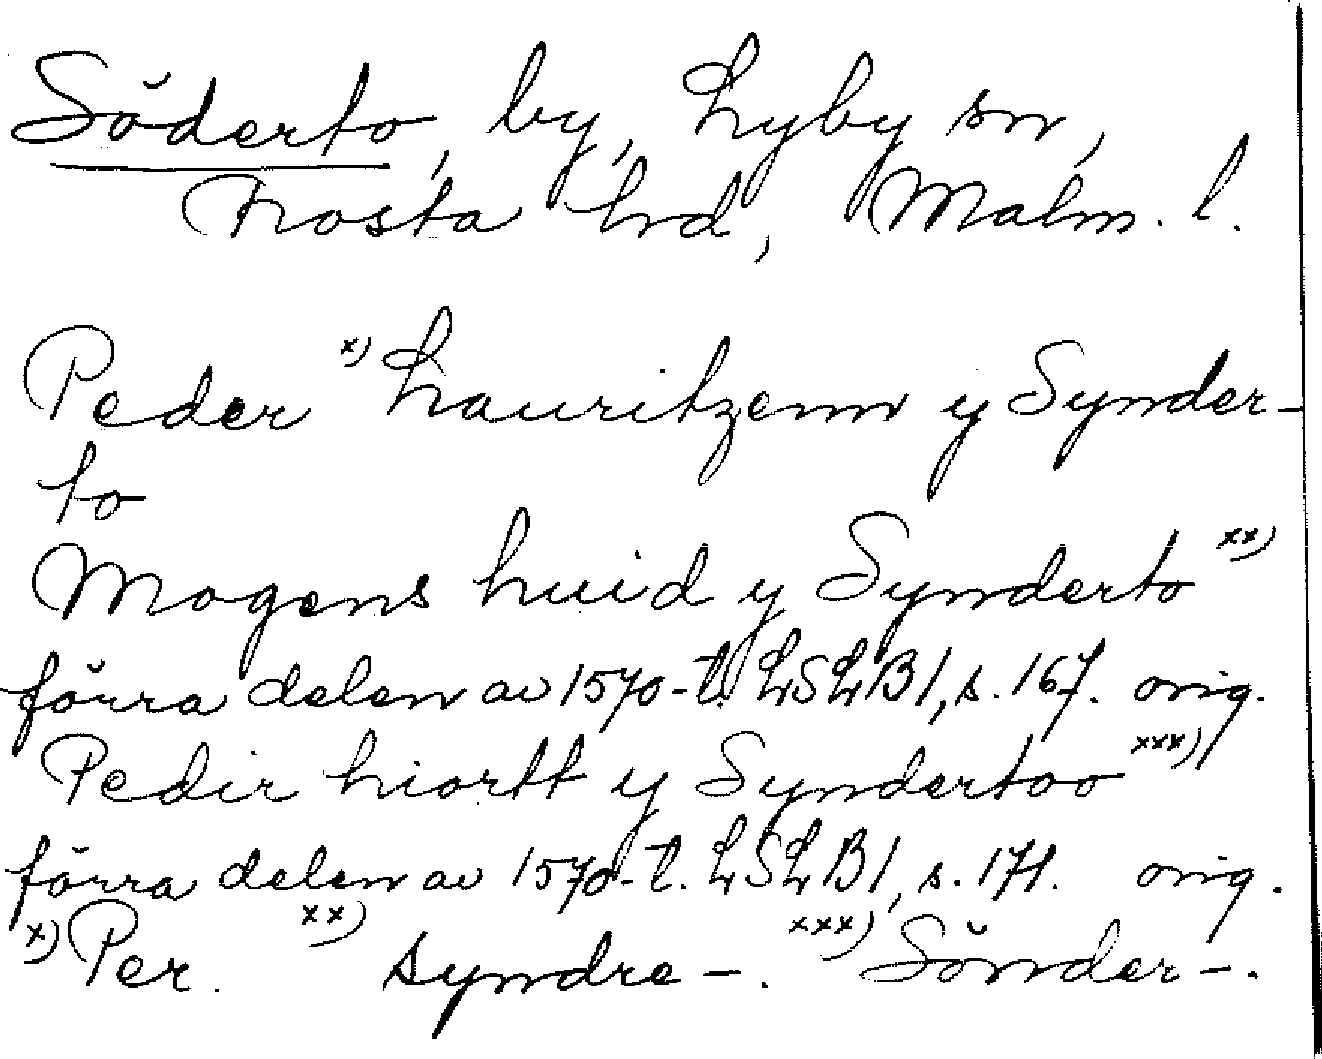 Söderto, by, Lyby sn,
Frosta hrd, Malm. l.
Peder x) Lauritzenn y Synder-
to
Mogens huid y Synderto xx)
förra delen av 1570-t. LSLB1, s. 167. orig.
Pedir hiortt y Syndertoo xxx)
förra delen av 1570-t. LSLB1, s. 171. orig.
x) Per. xx) syndre-. xxx) Sönder-.